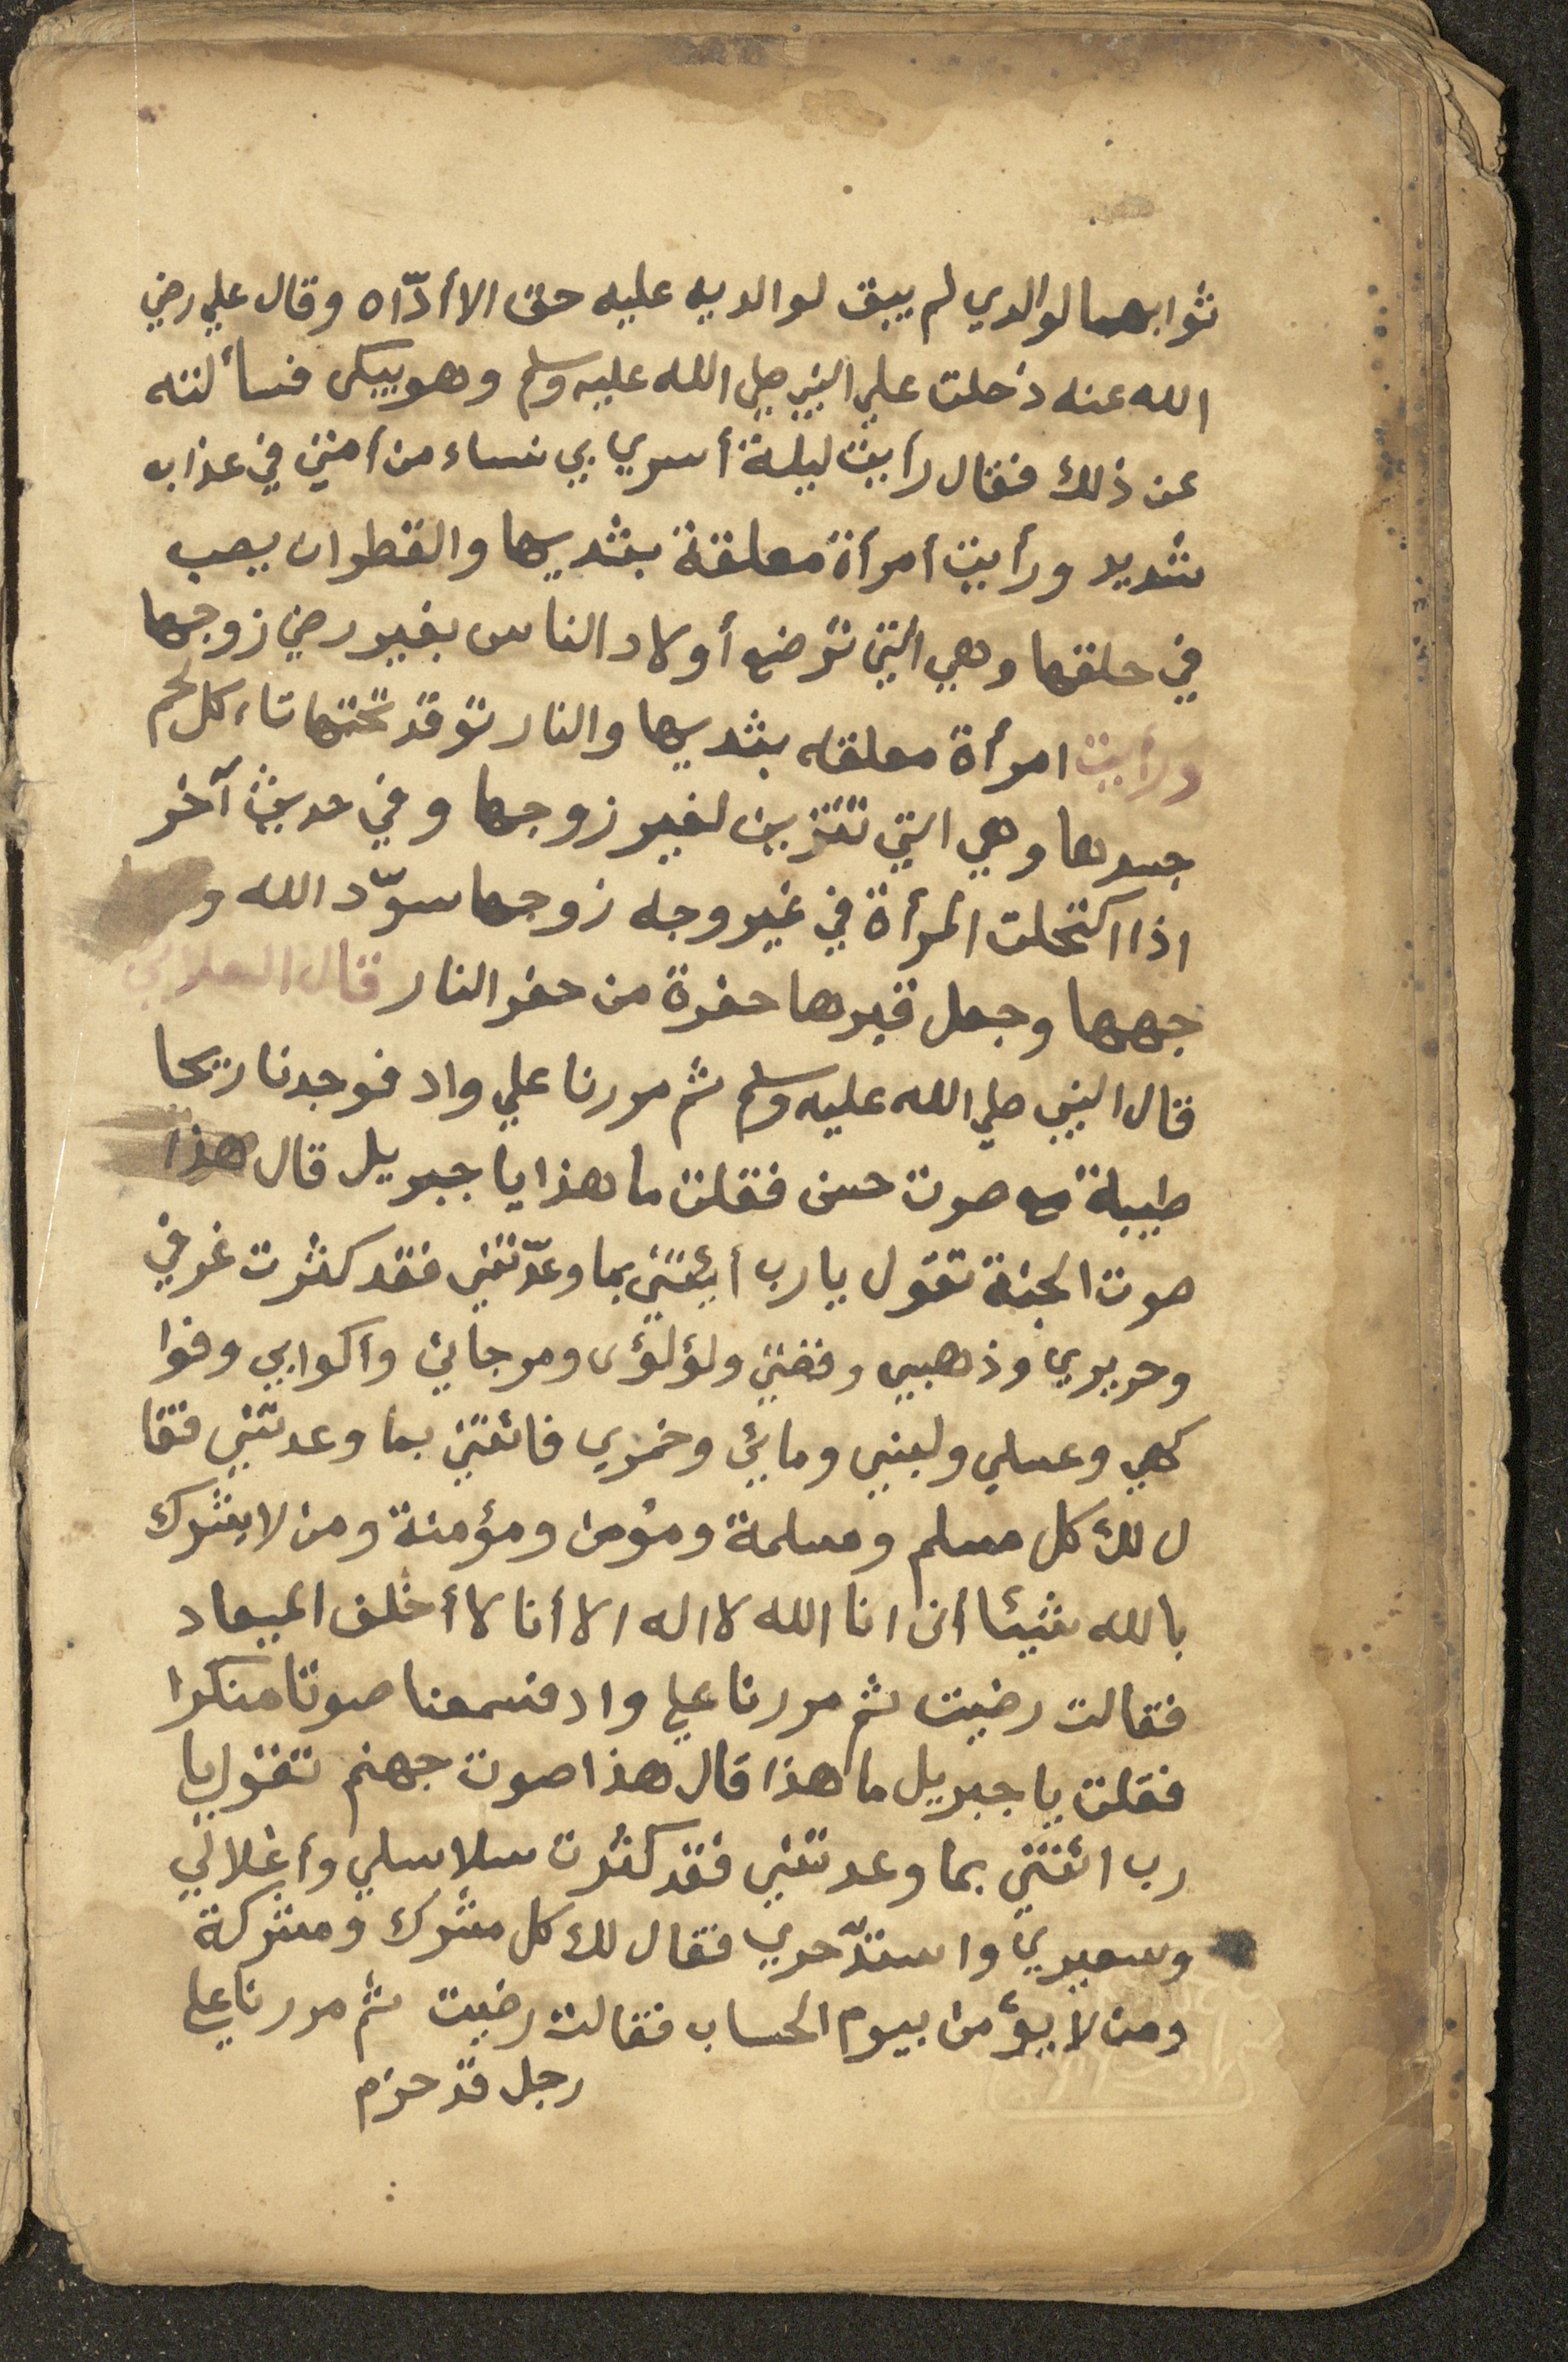 ثوابهما لوالدي لم يبق لوالديه عليه حق الا أدّاه وقال علي رضي
الله عنه دخلت علي النبي صلي الله عليه وسلم وهو يبكى فسألته
عن ذلك فقال رأيت ليلة أسري بي نساء من أمتي في عذاب
شديد ورأيت أمرأة معلقة بثديها والقطران يصب
في حلقها وهي التي ترضع أولاد الناس بغير رضي زوجها
ورأيت امرأة معلقه بثديها والنار توقد تحتها تاءكل لحم
جسدها وهي التي تتزين لغير زوجها وفي حديث آخر
اذا اكتحلت المرأة في غير وجه زوجها سوّد الله و
جهها وجعل قبرها حفرة من حفر النار قال العلائي
قال النبي صلي الله عليه وسلم ثم مررنا علي واد فوجدنا ريحا
طيبة مع صوت حسن فقلت ما هذا يا جبريل قال هذا
صوت الجنة تقول يا رب أئتني بما وعدّتني فقد كثرت غرفي
وحريري وذهبي وفضتي ولؤلؤى ومرجاني وأكوابي وفوا
كهي وعسلي ولبني ومائي وخمري فائتني بما وعدتني فقا
ل لك كل مسلم ومسلمة ومؤمن ومؤمنة ومن لا يشرك
بالله شيئا أن انا الله لا اله الا أنا لا أخلف الميعاد
فقالت رضيت ثم مررنا علي واد فسمعنا صوتا منكرا
فقلت يا جبريل ما هذا قال هذا صوت جهنم تقول يا
رب ائتني بما وعدتني فقد كثرت سلاسلي وأغلالي
وسعيري واشتدّ حري فقال لك كل مشرك ومشركة
ومن لا يؤمن بيوم الحساب فقالت رضيت ثم مررنا علي
رجل قد حزم